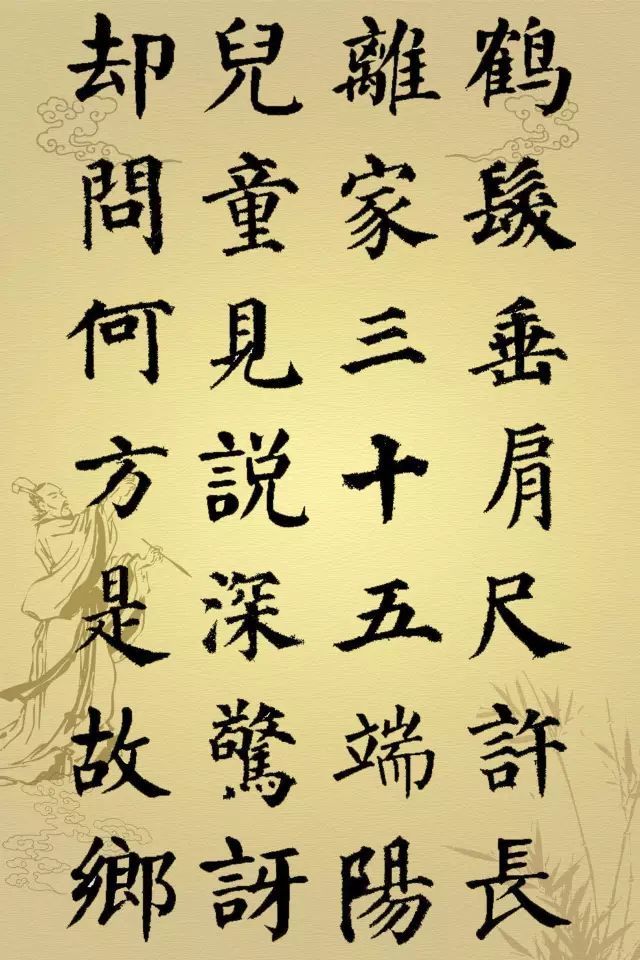 鶴髮垂肩尺許長
離家三十五端陽
兒童見說深驚訝
却問何方是故鄉